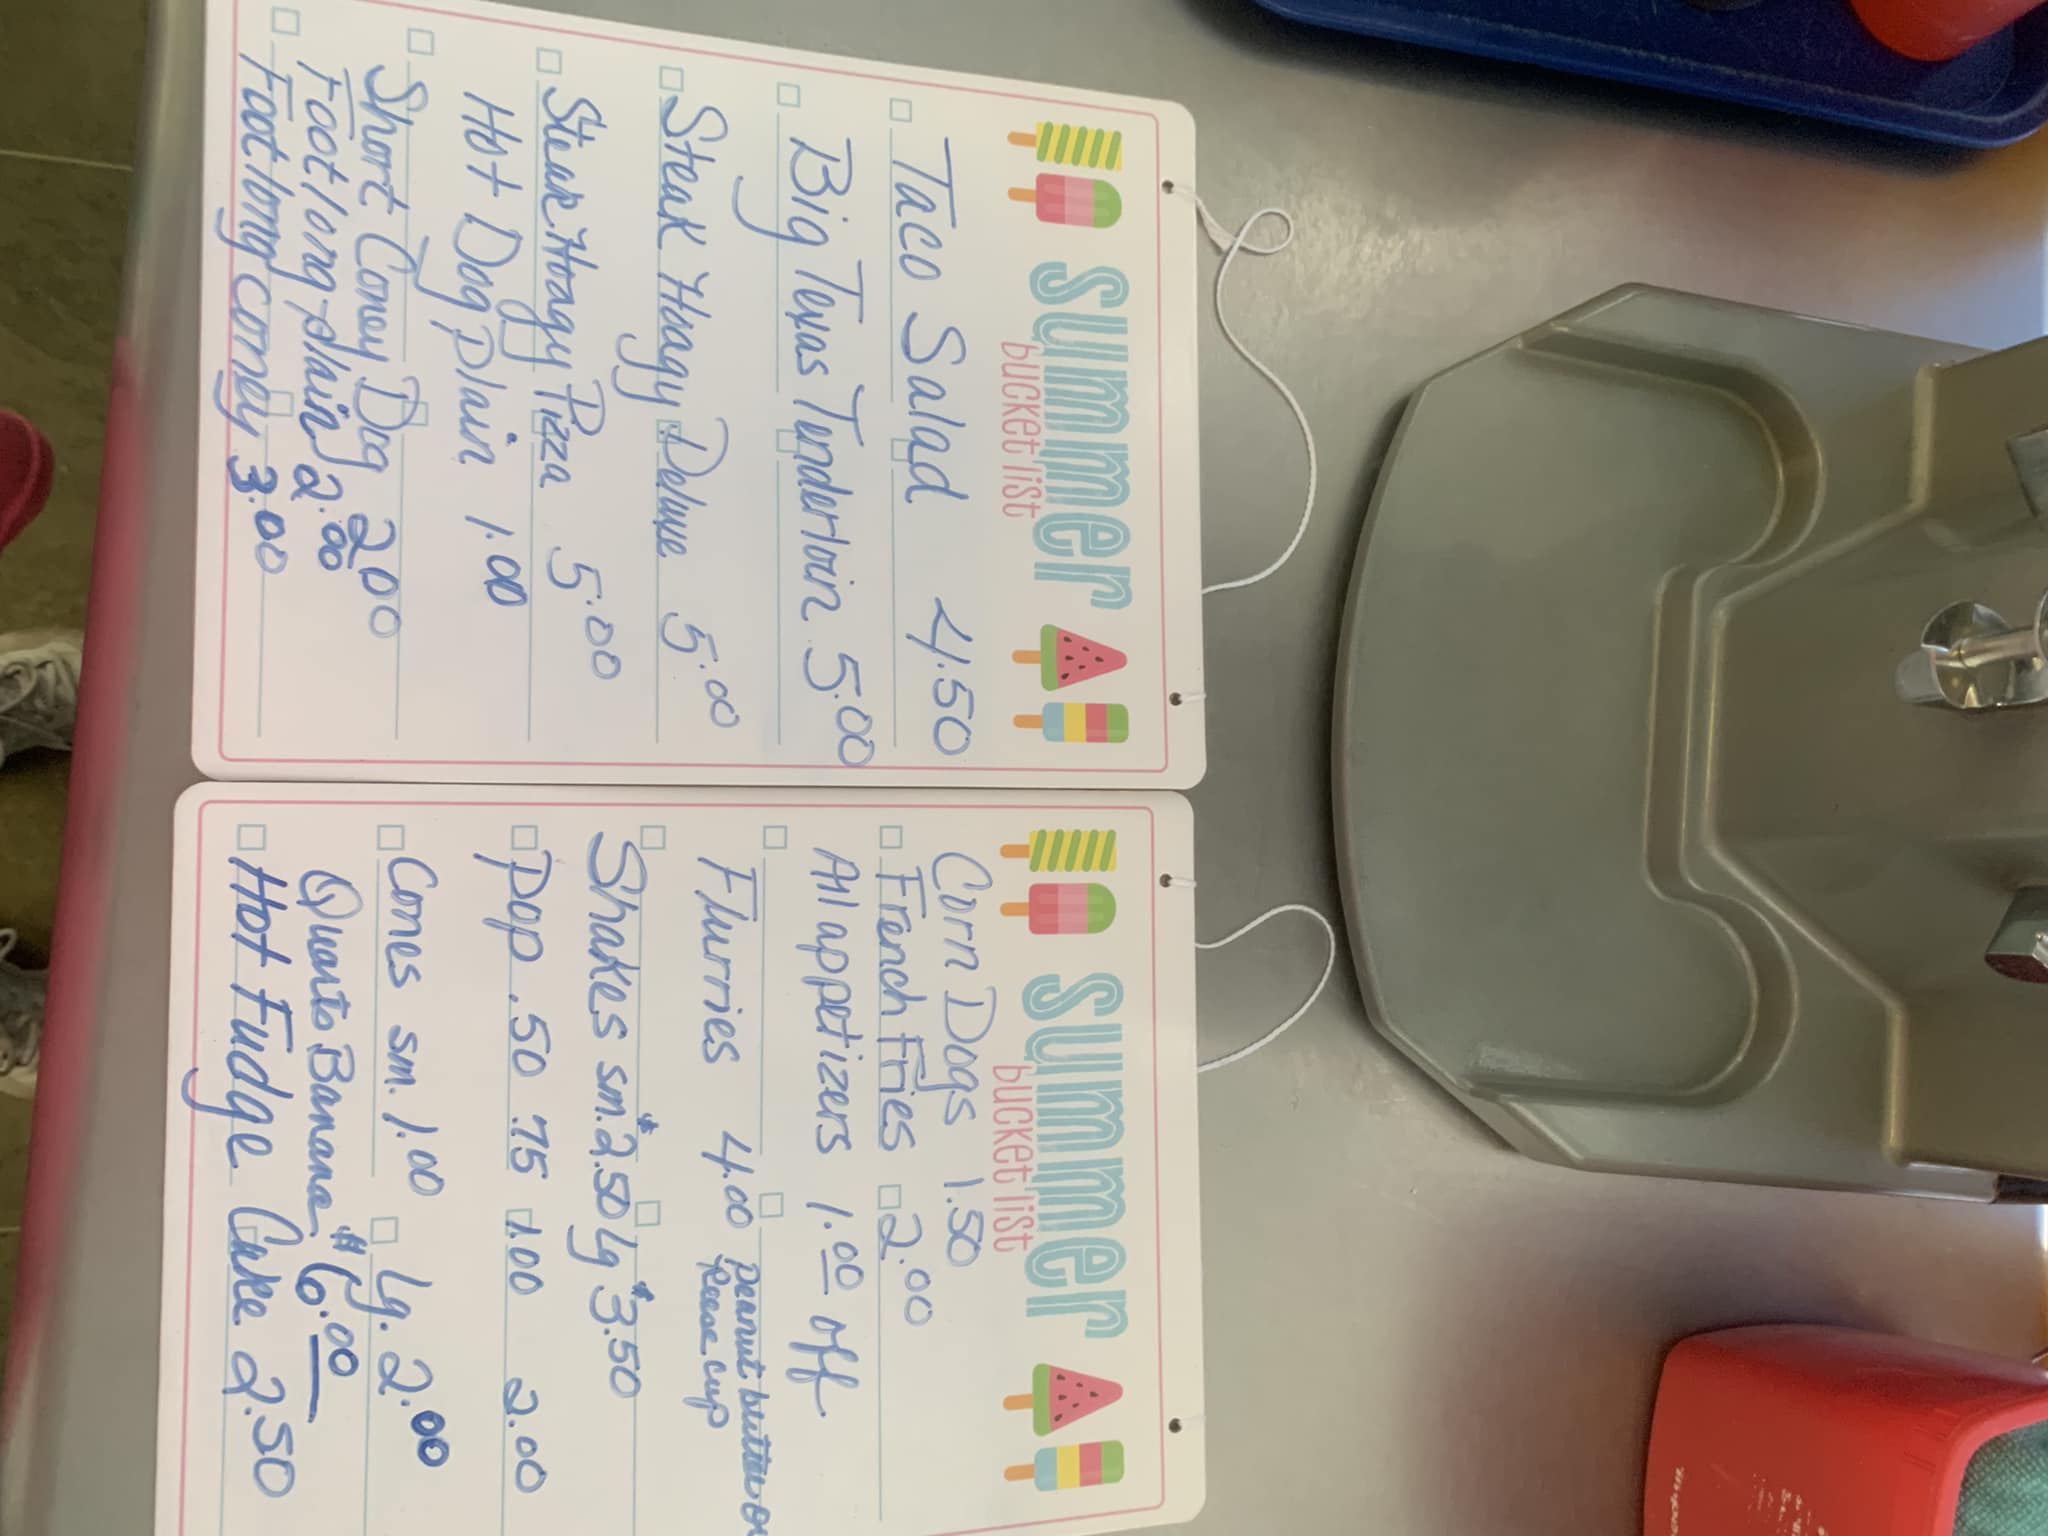 Summer
bucket list
Taco Salad 4.50
Big Texas Tenderloin 5.00
Steak Hoagy Deluxe 5.00
Steak Hoagy Pizza 5.00
Hot Dog Plain 1.00
Short Coney Dog 2.00
Foot long plain 2.00
Foot long coney 3.00
Summer
bucket list
Corn Dogs 1.50
French Fries 2.00
All appetizers 1.00 off
Flurries 4.00 peanut butter or
Reese cup
Shakes sm. $2.50 lg $3.50
Pop .50 .75 1.00 2.00
Cones sm. 1.00 lg. 2.00
Quarts Banana $6.00
Hot Fudge Cake 2.50